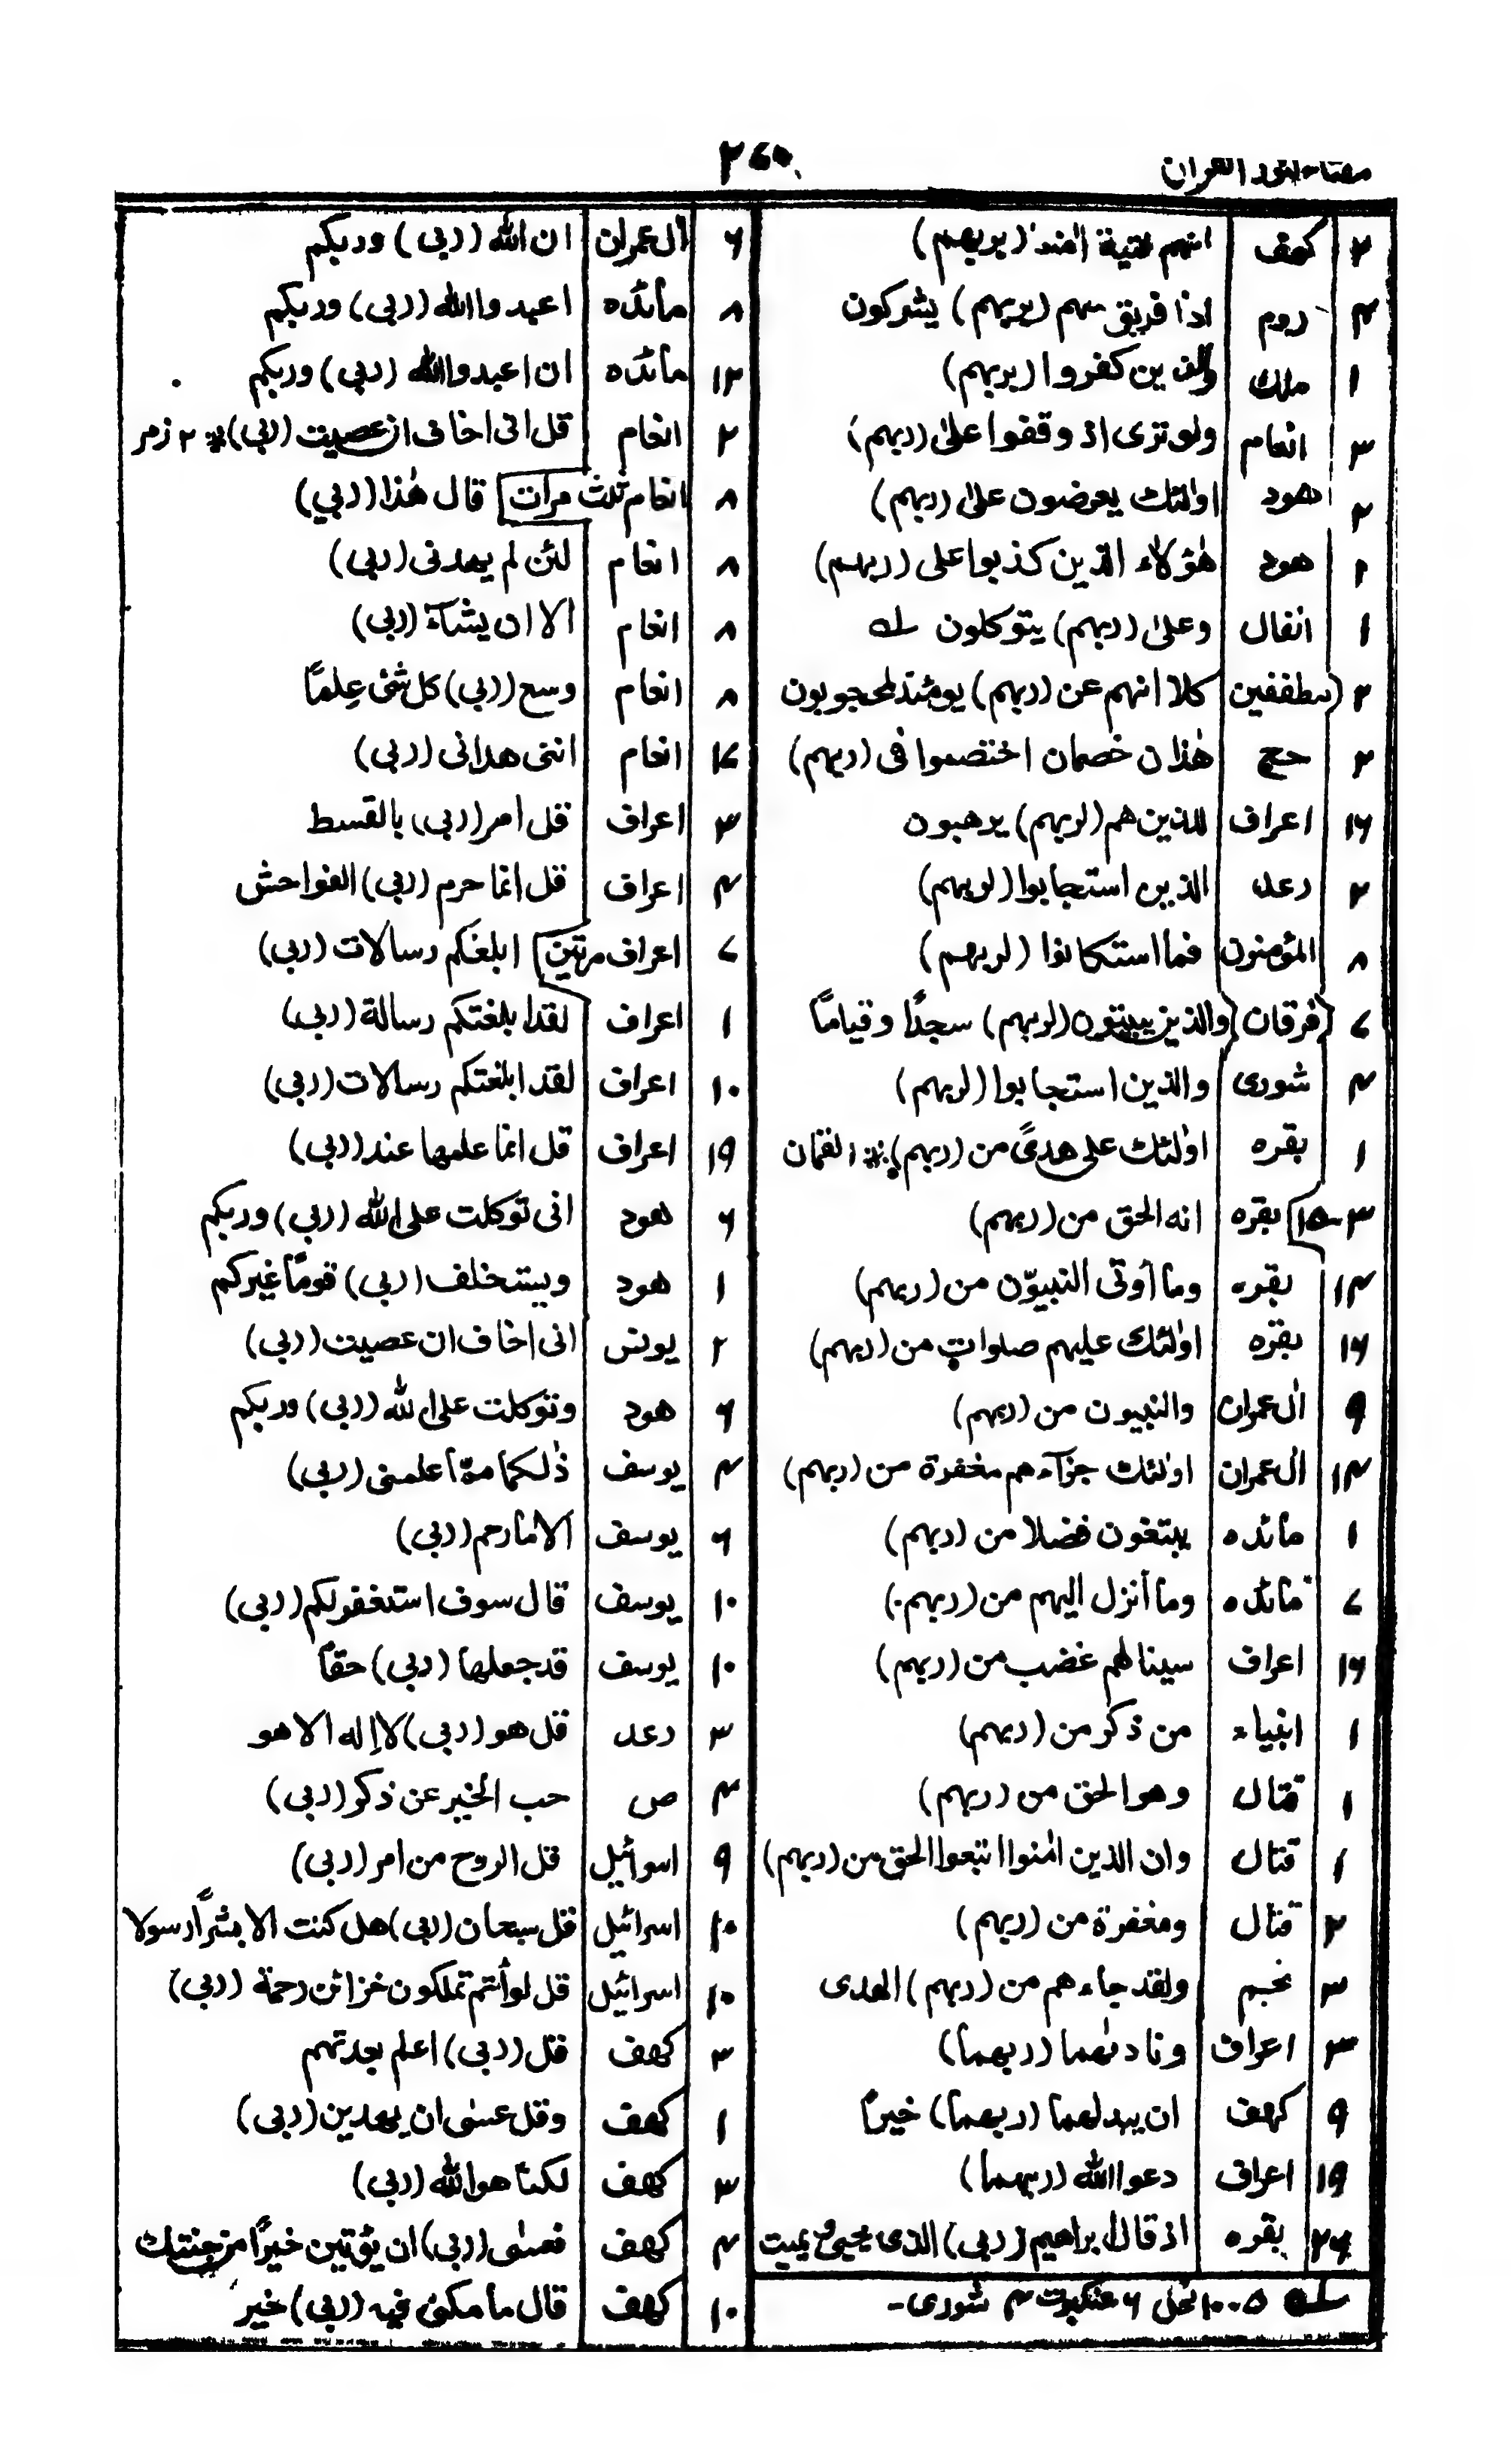 ۲۷۵
۲ کهف انهم فتية امنوا (بربهم)
۴ روم اذا فريق منهم (بربهم) يشركون
۱ ملك والذين كفروا (بربهم)
۳ انعام ولو ترى اذ وقفوا على (ربهم)
۲ هود اولئك يعرضون على (ربهم)
۲ هود هؤلاء الذين كذبوا على (ربهم)
۱ انفال وعلى (ربهم) يتوكلون له
۲ مطففين كلا انهم عن (ربهم) يومئذ لمحجوبون
۲ حج هذان خصمان اختصموا فى (ربهم)
۱۶ اعراف للذين هم (لربهم) يرهبون
۲ رعد الذين استجابوا (لربهم)
۸ المؤمنون فما استكانوا (لربهم)
۷ فرقان والذين يبيتون (لربهم) سجدًا وقيامًا
۴ شورى والذين استجابوا (لربهم)
۱ بقره اولئك على هدًى من (ربهم) ۱ لقمان
۳-۱۵ بقره انه الحق من (ربهم)
۱۴ بقره وما أوتى النبيّون من (ربهم)
۱۶ بقره اولئك عليهم صلوات من (ربهم)
۹ ال عمران والنبيون من (ربهم)
۱۴ ال عمران اولئك جزآءهم مغفرة من (ربهم)
۱ مائده يبتغون فضلا من (ربهم)
۷ مائده وما أنزل اليهم من (ربهم)
۱۶ اعراف سينالهم غضب من (ربهم)
۱ انبياء من ذكر من (ربهم)
۱ قتال وهو الحق من (ربهم)
۱ قتال وان الذين امنوا اتبعوا الحق من (ربهم)
۲ قتال ومغفرة من (ربهم)
۳ نجم ولقد جاءهم من (ربهم) الهدى
۳ اعراف ونادىهما (ربهما)
۹ كهف ان يبدلهما (ربهما) خيرًا
۱۹ اعراف دعوا الله (ربهما)
۲۶ بقره اذ قال ابراهيم (ربى) الذى يحيى ويميت
له ۵-۱۰ نحل ۶ عنكبوت ۴ شورى-
۶ أل عمران ان الله (ربى) وربكم
۸ مائده اعبدوا الله (ربى) وربكم
۱۲ مائده ان اعبدوا الله (ربى) وربكم
۲ انعام قل انى اخاف ان عصيت (ربى) ۲ زمر
۸ انعام ثلث مرات قال هذا (ربي)
۸ انعام لئن لم يهدنى (ربى)
۸ انعام الا ان يشآء (ربى)
۸ انعام وسع (ربى) كل شئ علمًا
۱۷ انعام اننى هدانى (ربى)
۳ اعراف قل امر (ربى) بالقسط
۴ اعراف قل انما حرم (ربى) الفواحش
۷ اعراف مرتين ابلغكم رسالات (ربى)
۱ اعراف لقد ابلغتكم رسالة (ربى)
۱۰ اعراف لقد ابلغتكم رسالات (ربى)
۱۹ اعراف قل انما علمها عند (ربى)
۶ هود انى توكلت على الله (ربى) وربكم
۱ هود ويستخلف (ربى) قومًا غيركم
۲ يونس انى اخاف ان عصيت (ربى)
۶ هود وتوكلت على الله (ربى) وربكم
۴ يوسف ذلكما ممّا علمنى (ربى)
۶ يوسف الا ما رحم (ربى)
۱۰ يوسف قال سوف استغفر لكم (ربى)
۱۰ يوسف قد جعلها (ربى) حقًا
۳ رعد قل هو (ربى) لا إله الا هو
۴ ص حب الخير عن ذكر (ربى)
۹ اسرائيل قل الروح من امر (ربى)
۱۰ اسرائيل قل سبحان (ربى) هل كنت الا بشرًا رسولا
۱۰ اسرائيل قل لو أنتم تملكون خزائن رحمة (ربى)
۳ كهف قل (ربى) اعلم بعدتهم
۱ كهف وقل عسى ان يهدين (ربى)
۳ كهف لكنا هو الله (ربى)
۴ كهف فعسى (ربى) ان يؤتين خيرًا من جنتك
۱۰ كهف قال ما مكنى فيه (ربى) خير